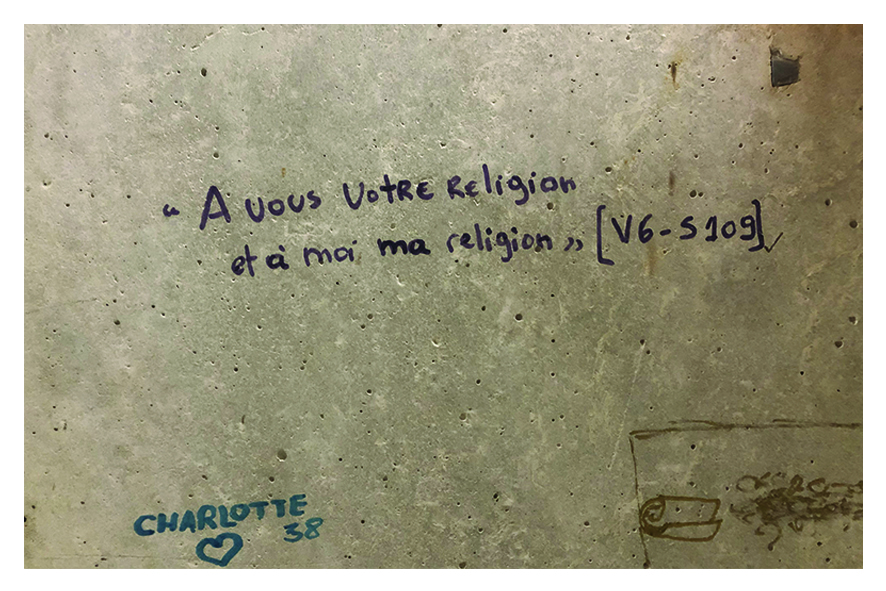 “ A vous VotRE Religion
et à moi ma religion » [V6-S109]
CHARLOTTE
38